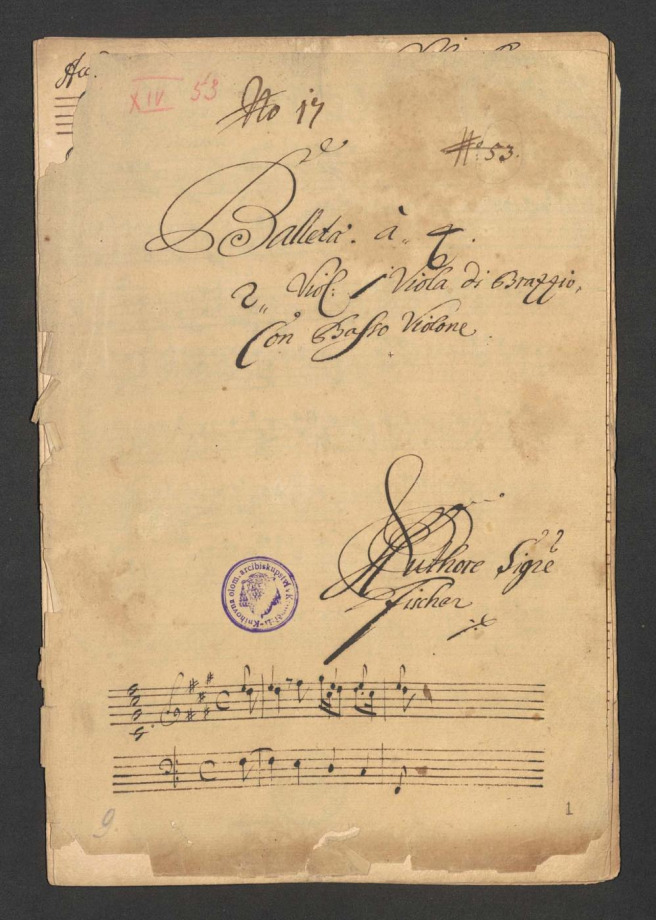 XIV 53
No 17
No: 53.
Balletæ. à 4.
2 Viol: 1 Viola di Brazzio,
Con Basso Violone
Authore Sigre
Fischer
Knihovna olom. arcibiskupství v
1
9